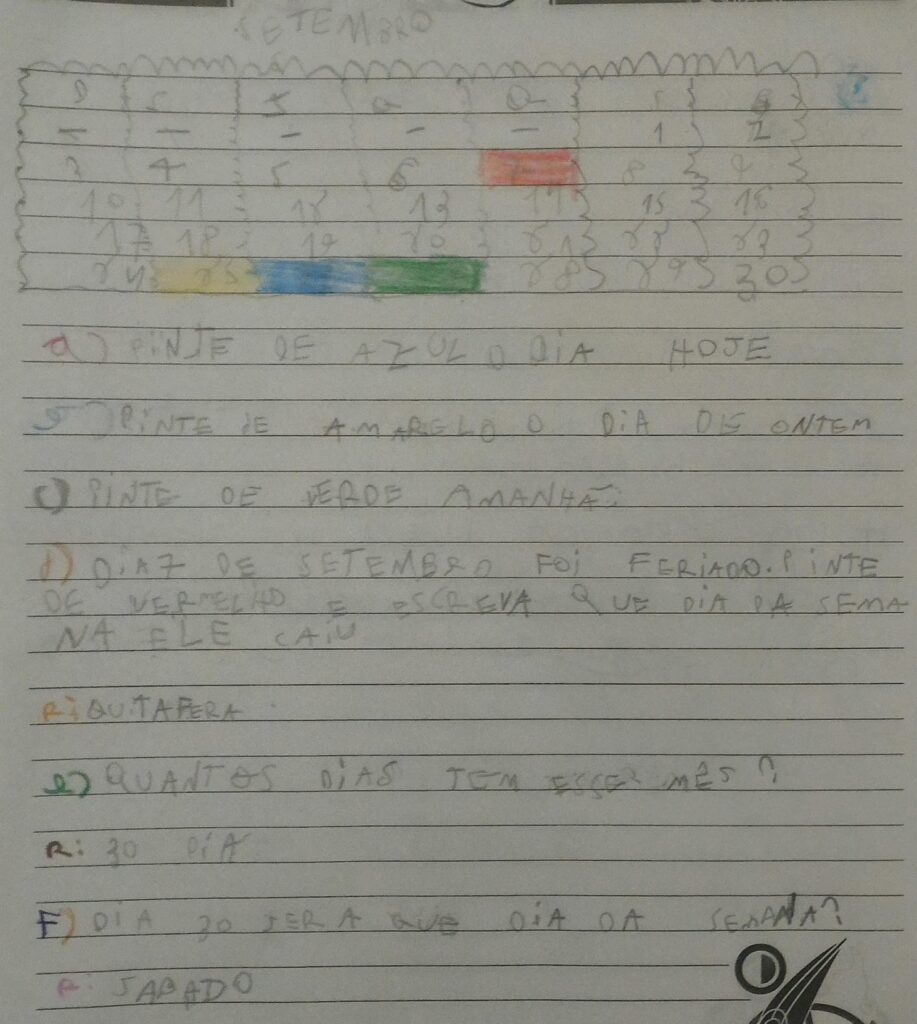 SETEMBRO
D S T Q Q S S
— — — — — 1 2
3 4 5 6 7 8 9
10 11 12 13 14 15 16
17 18 19 20 21 23 23
24 25 28 29 30
a) PINTE DE AZUL O DIA HOJE
PINTE DE AMARELO O DIA DE ONTEM
c) PINTE DE VERDE AMANHÃ.
d) DIA 7 DE SETEMBRO FOI FERIADO. PINTE
DE VERMELHO E ESCREVA QUE DIA DA SEMA
NA ELE CAIU
R: QUITAFERA.
e) QUANTOS DIAS TEM ESSE MÊS?
R: 30 DIA
F) DIA 30 SERA QUE DIA DA SEMANA?
R: SABADO